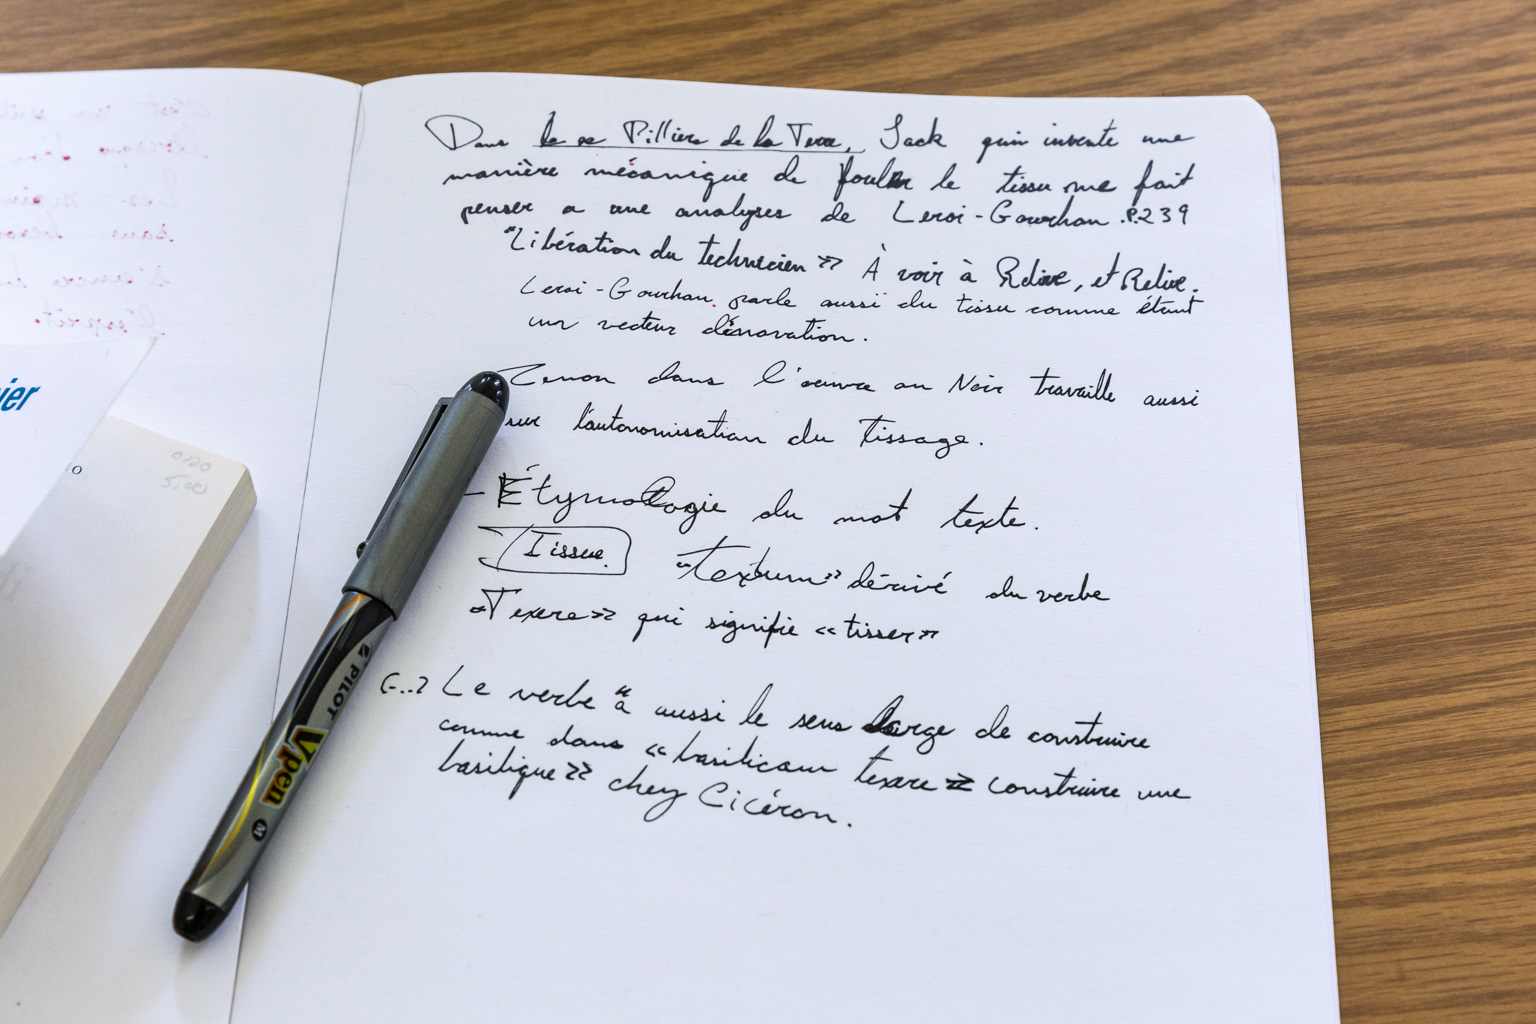 Dans le ce Pilliers de la Terre, Jack qui invente une
manière mécanique de fouler le tissu me fait
penser a une analyses de Leroi-Gourhan. P.239
"Libération du technicien" À voir à Relire, et Relire.
Leroi-Gourhan parle aussi du tissu comme étant
un vecteur d'énovation.
Zenon dans l'oeuvre au Noir travaille aussi
sur l'autonomisation du tissage.
- Étymologie du mot texte.
Tissue. "Textum" dérivé du verbe
«Texere» qui signifie «tisser»
(...) Le verbe "a aussi le sens large de construire
comme dans «basilicam texere» construire une
basilique» chez Cicéron.
ier
0120
5,00
PILOT
Vpen
M